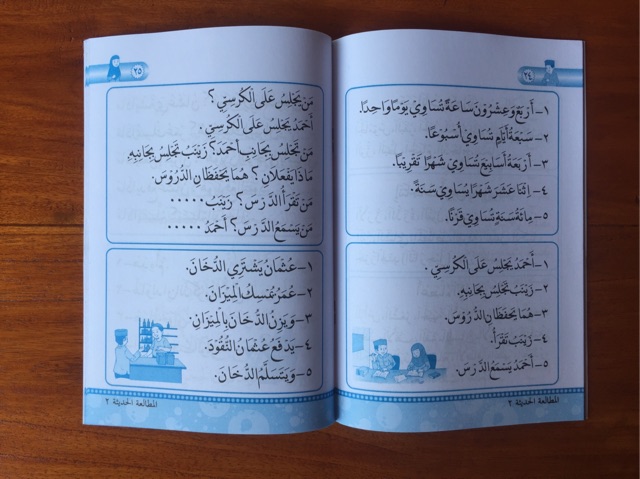 ٢٤
١- أَرْبَعٌ وَعِشْرُوْنَ سَاعَةً تُسَاوِيْ يَوْمًا وَاحِدًا.
٢- سَبْعَةُ أَيَّامٍ تُسَاوِيْ أُسْبُوْعًا.
٣- أَرْبَعَةُ أَسَابِيْعَ تُسَاوِيْ شَهْرًا تَقْرِيْبًا.
٤- اِثْنَا عَشَرَ شَهْرًا يُسَاوِيْ سَنَةً.
٥- مِائَةُ سَنَةٍ تُسَاوِيْ قَرْنًا.
١- أَحْمَدُ يَجْلِسُ عَلَى الْكُرْسِيِّ.
٢- زَيْنَبُ تَجْلِسُ بِجَانِبِهِ.
٣- هُمَا يَحْفَظَانِ الدُّرُوْسَ.
٤- زَيْنَبُ تَقْرَأُ.
٥- أَحْمَدُ يَسْمَعُ الدَّرْسَ.
المطالعة الحديثة ٢
٢٥
مَنْ يَجْلِسُ عَلَى الْكُرْسِيِّ ؟
أَحْمَدُ يَجْلِسُ عَلَى الْكُرْسِيِّ .
مَنْ تَجْلِسُ بِجَانِبِ أَحْمَدَ؟ زَيْنَبُ تَجْلِسُ بِجَانِبِهِ.
مَاذَا يَفْعَلَانِ ؟ هُمَا يَحْفَظَانِ الدُّرُوْسَ.
مَنْ تَقْرَأُ الدَّرْسَ ؟ زَيْنَبُ .....
مَنْ يَسْمَعُ الدَّرْسَ ؟ أَحْمَدُ .....
١- عُثْمَانُ يَشْتَرِي الدُّخَانَ.
٢- عُمَرُ يُمْسِكُ الْمِيْزَانَ.
٣- وَيَزِنُ الدُّخَانَ بِالْمِيْزَانِ.
٤- يَدْفَعُ عُثْمَانُ النُّقُوْدَ.
٥- وَيَتَسَلَّمُ الدُّخَانَ.
المطالعة الحديثة ٢